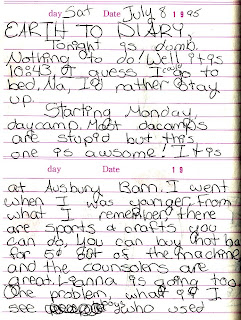 day Sat Date July 8 1995
EARTH TO DIARY,
Tonight is dumb.
Nothing to do! Well it is
10:43. I guess I go to
bed. Na, I'd rather stay
up.
Starting Monday,
daycamp. Most dacamps
are stupid but this
one is awsome! It is
day Date 19
at Ausbury Barn. I went
when I was younger. From
what I remember, there
are sports & crafts you
can do, you can buy hot ba
for 5¢ out of the machine
and the counselers are
great. Lianna is going too.
One problem, what if I
see boys who used